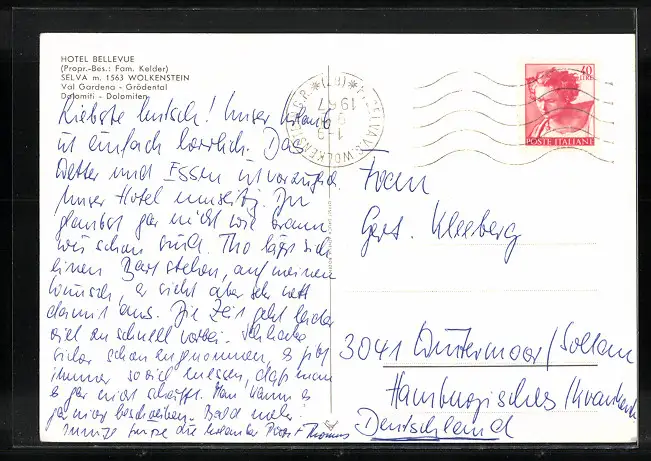 HOTEL BELLEVUE
(Propr.-Bes.: Fam. Kelder)
SELVA m. 1563 WOLKENSTEIN
Val Gardena - Grödental
Dolomiti - Dolomiten
Liebste Mutsch! Unser Urlaub
ist einfach herrlich. Das
Wetter und Essen ist vorzüglich
Unser Hotel einseitig. Du
glaubst gar nicht wie braun
wir schon sind. Tho läßt sich
einen Bart stehen, auf meinen
Wunsch, er sieht aber sehr nett
damit aus. Die Zeit geht leider
viel zu schnell vorbei.
sicher schon zugenommen, es gibt
immer soviel zu essen, daß man
es gar nicht schafft. Man kann es
gar nicht beschreiben. Bald mehr
Grüße die + Thomas
40
LIRE
POSTE ITALIANE
1967
Frau
Gert. Kleeberg
3041 Wintermoor/Soltau
Hamburgisches Krankenh
Deutschland